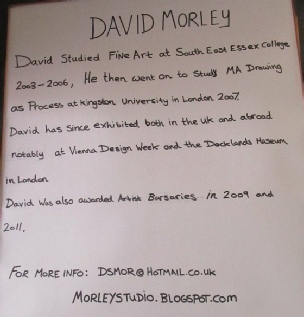 DAVID MORLEY
David Studied Fine Art at South East Essex College
2003-2006, He then went on to Study MA Drawing
as Process at Kingston University in London 2007.
David has since exhibited both in the UK and abroad
notably at Vienna Design Week and the Docklands Museum
in London
David was also awarded Artist Bursaries in 2009 and
2011.
FOR MORE INFO: DSMOR@HOTMAIL.CO.UK
MORLEYSTUDIO.BLOGSPOT.COM